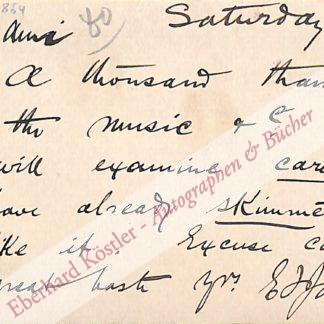 1884
80
Saturday
A thousand than
the music & c
will examine care
have already skimme
like it. Excuse ca
great haste yrs
Eberhard Köstler - Autographen & Bücher